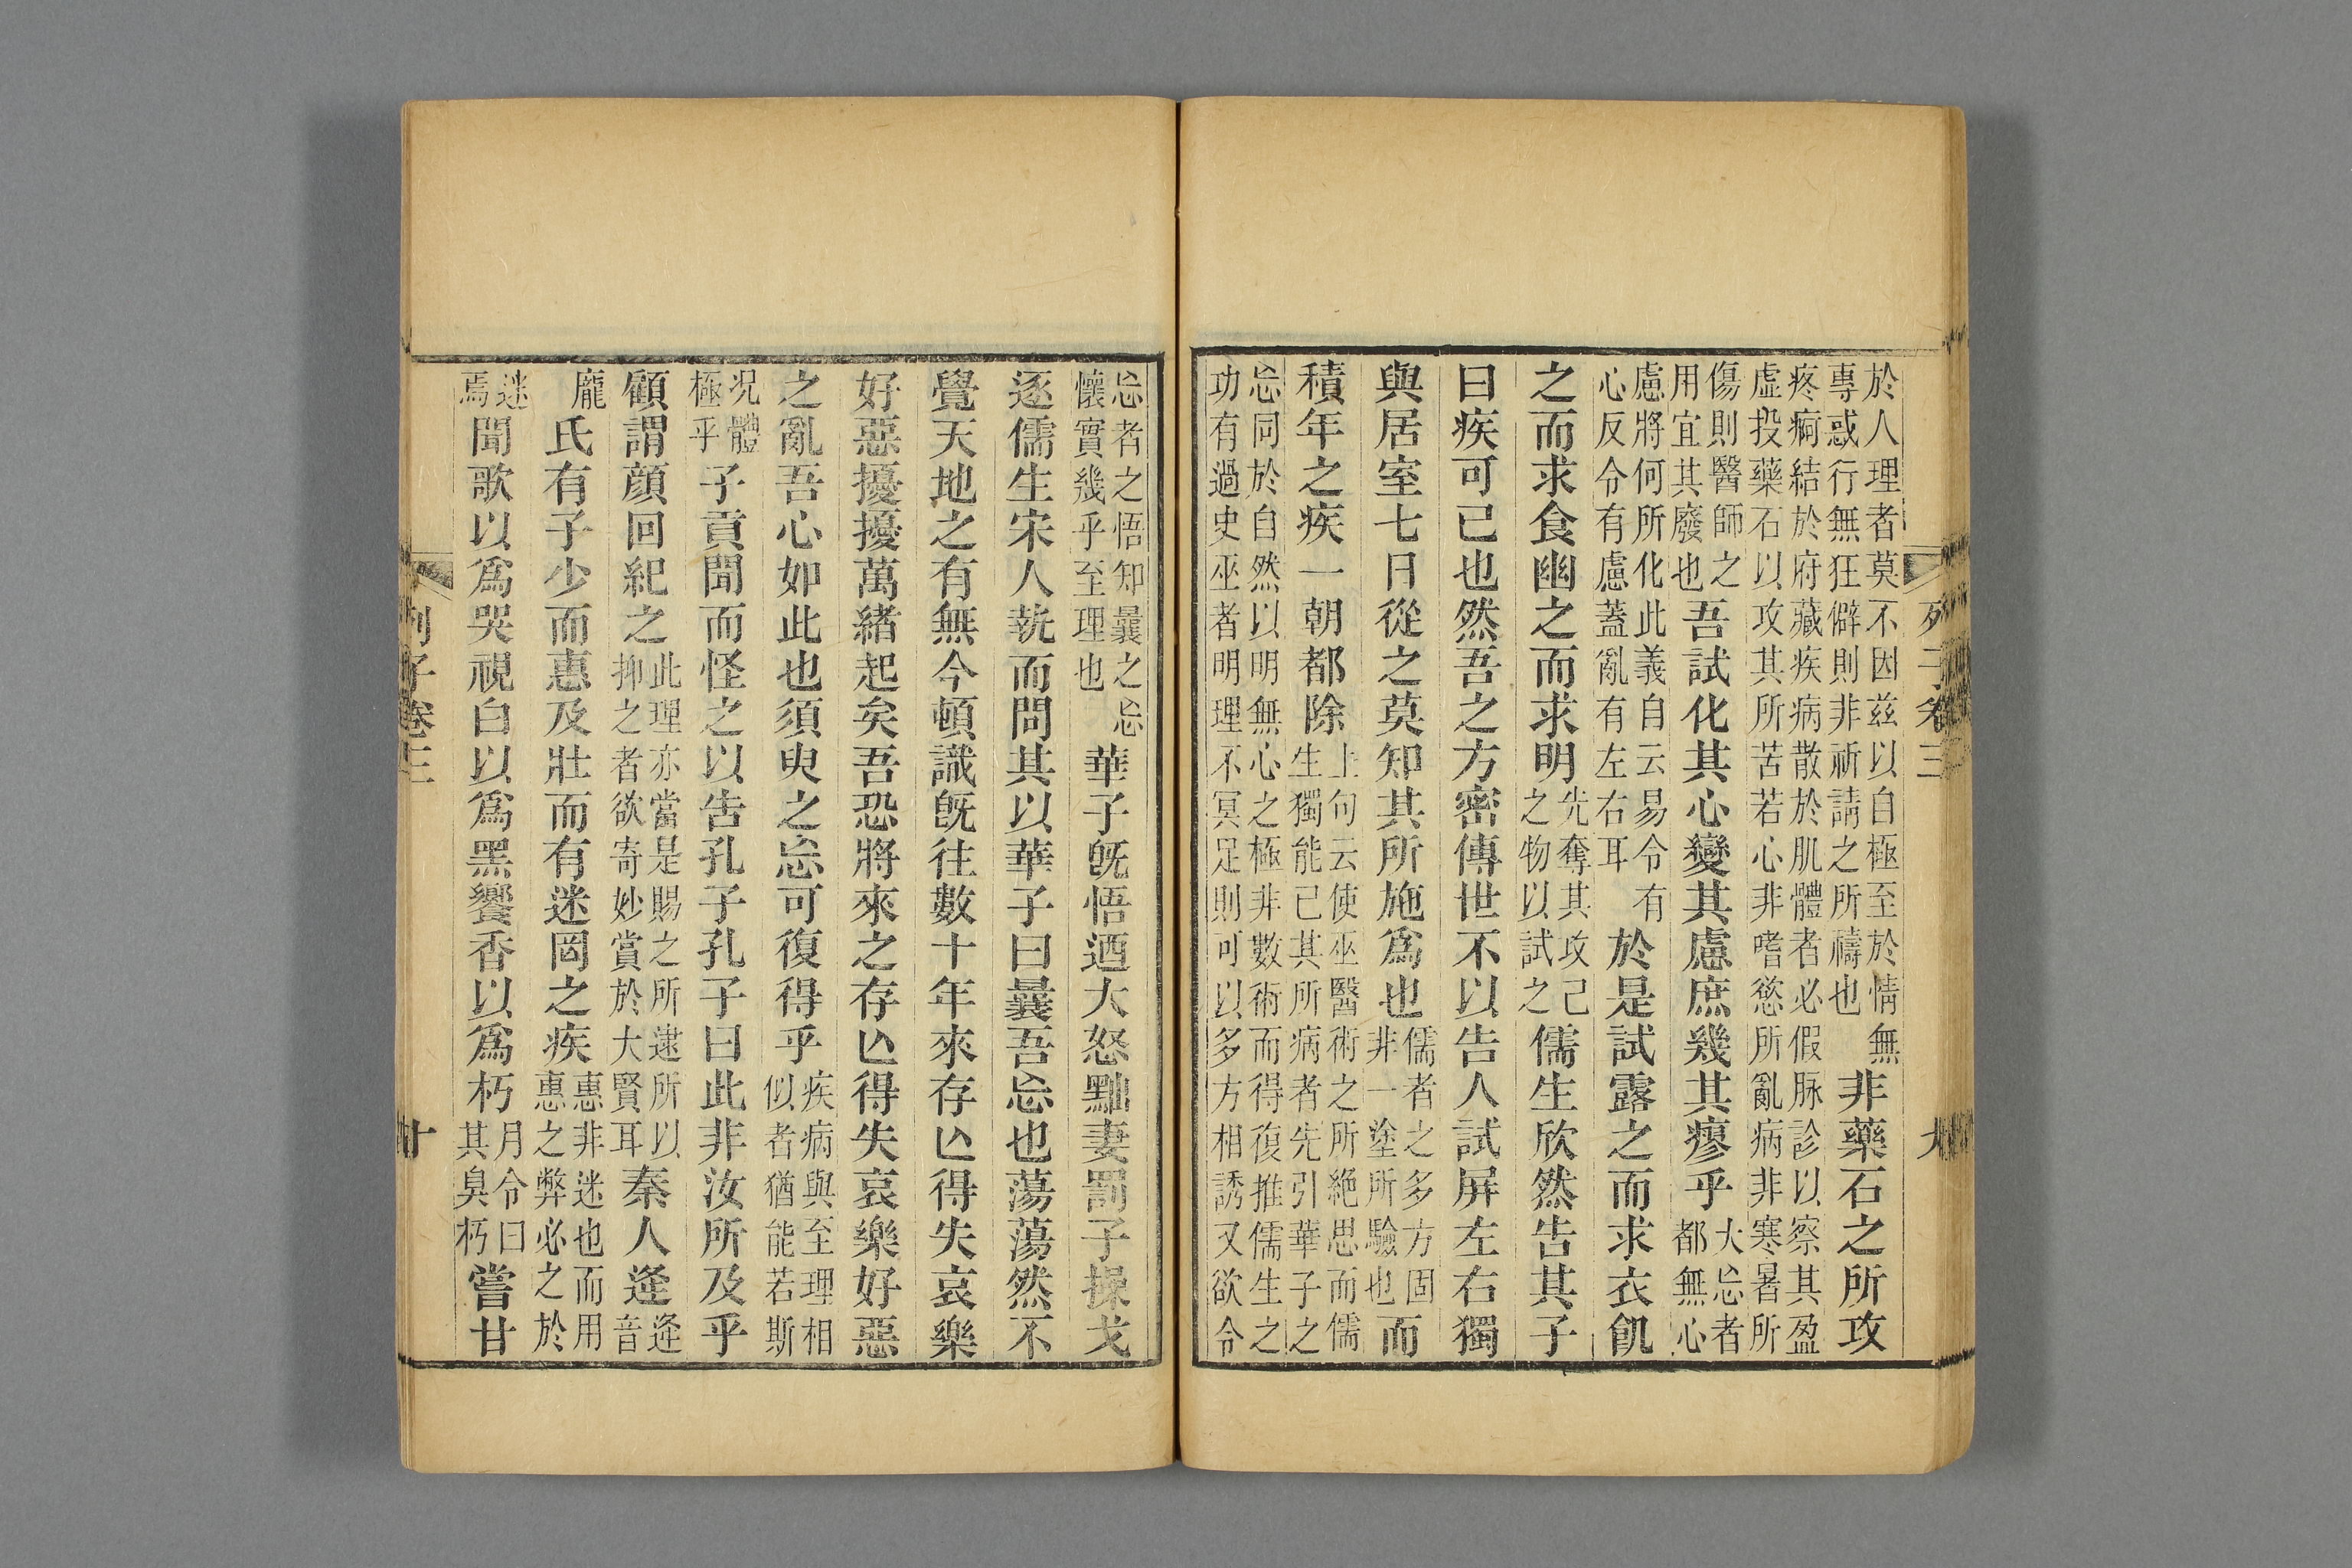 列子卷三
於人理者莫不因茲以自極至於情無
專惑行無狂僻則非祈請之所禱也
非藥石之所攻
疼痾結於府藏疾病散於肌體者必假脉診以察其盈
虛投藥石以攻其所苦若心非嗜慾所亂病非寒暑所
傷則醫師之
用宜其廢也
吾試化其心變其慮庶幾其瘳乎
大忘者
都無心
慮將何所化此義自云易令有
心反令有慮蓋亂有左右耳
於是試露之而求衣飢
之而求食幽之而求明
先奪其攻己
之物以試之
儒生欣然告其子
曰疾可已也然吾之方密傳世不以告人試屏左右獨
與居室七日從之莫知其所施爲也
儒者之多方固
非一塗所驗也
而
積年之疾一朝都除
上句云使巫醫術之所絕思而儒
生獨能已其所病者先引華子之
忘同於自然以明無心之極非數術而得復推儒生之
功有過史巫者明理不冥足則可以多方相誘又欲令
忘者之悟知曩之忘
懷實幾乎至理也
華子旣悟迺大怒黜妻罰子操戈
逐儒生宋人執而問其以華子曰曩吾忘也蕩蕩然不
覺天地之有無今頓識旣往數十年來存亾得失哀樂
好惡擾擾萬緒起矣吾恐將來之存亾得失哀樂好惡
之亂吾心如此也須臾之忘可復得乎
疾病與至理相
似者猶能若斯
況體
極乎
子貢聞而怪之以告孔子孔子曰此非汝所及乎
顧謂顔回紀之
此理亦當是賜之所逮所以
抑之者欲寄妙賞於大賢耳
秦人逢
逢
音
龐
氏有子少而惠及壯而有迷罔之疾
惠非迷也而用
惠之弊必之於
迷
焉
聞歌以爲哭視白以爲黑饗香以爲朽
月令曰
其臭朽
嘗甘
列子卷三
廿